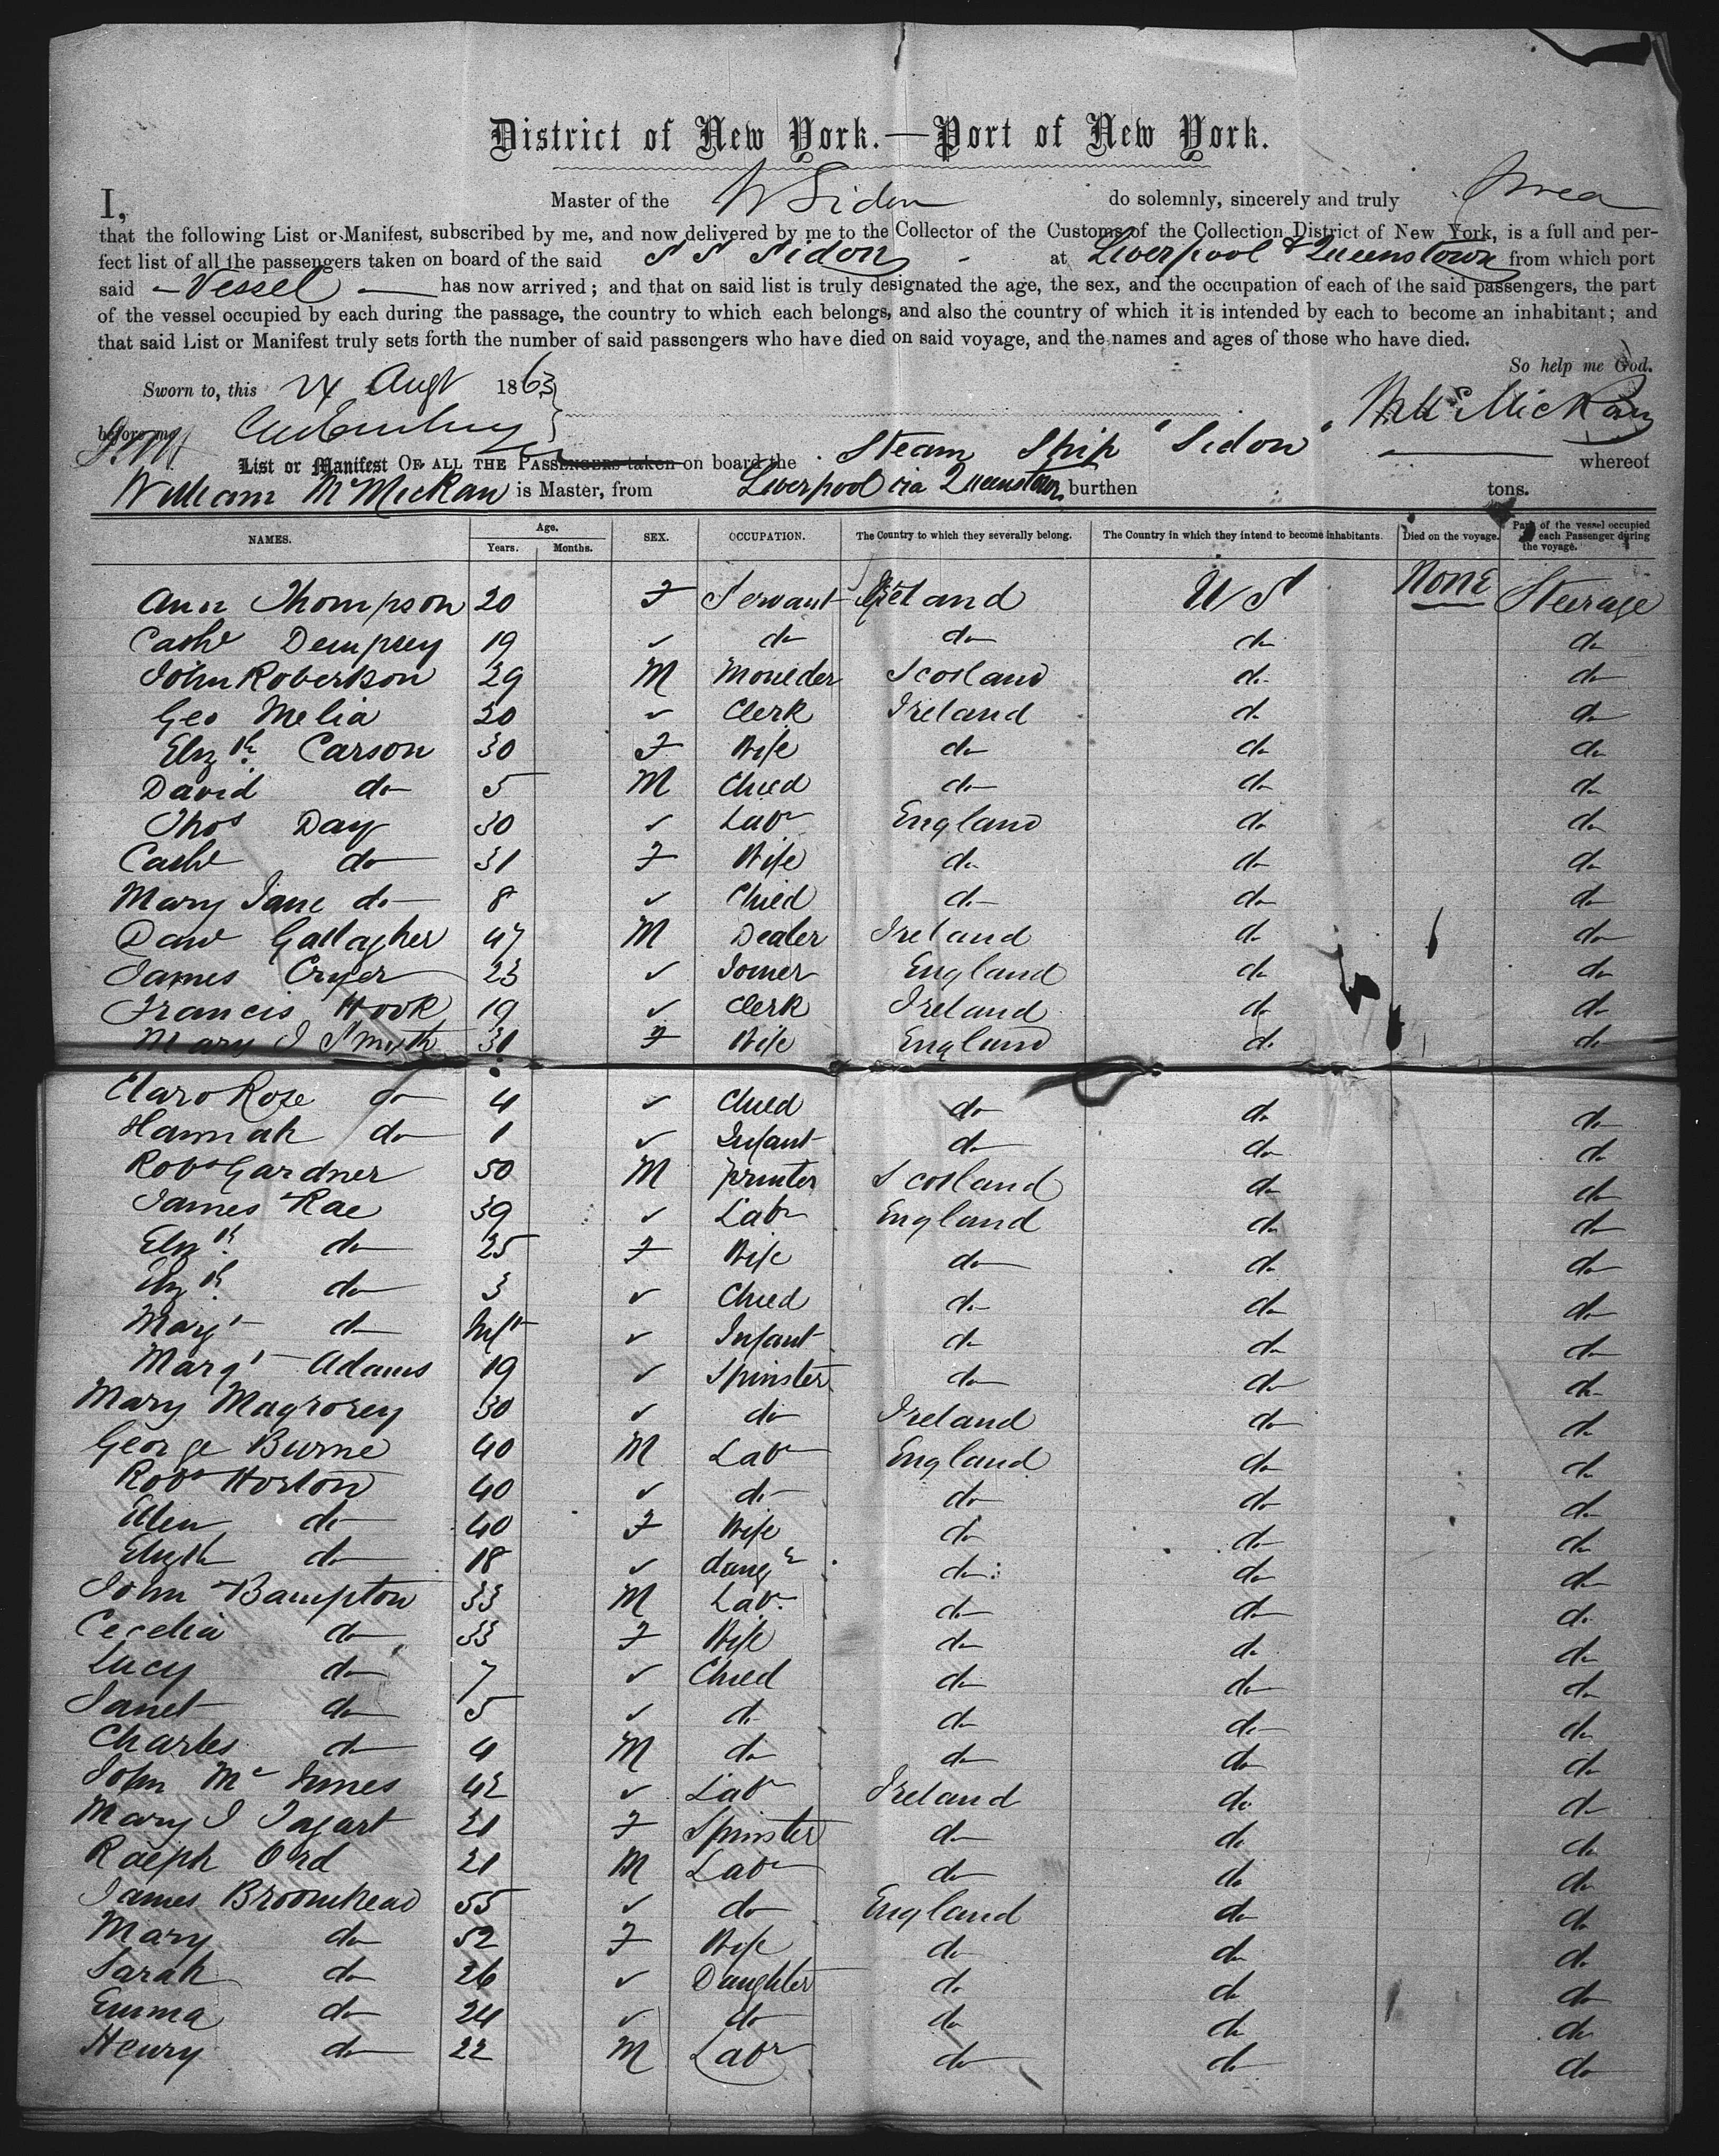 District of New York.—Port of New York.
I, Master of the Sidon do solemnly, sincerely and truly
that the following List or Manifest, subscribed by me, and now delivered by me to the Collector of the Customs of the Collection District of New York, is a full and per-
fect list of all the passengers taken on board of the said S S Sidon at Liverpool & Queenstown from which port
said — Vessel — has now arrived; and that on said list is truly designated the age, the sex, and the occupation of each of the said passengers, the part
of the vessel occupied by each during the passage, the country to which each belongs, and also the country of which it is intended by each to become an inhabitant; and
that said List or Manifest truly sets forth the number of said passengers who have died on said voyage, and the names and ages of those who have died.
So help me God.
Sworn to, this 24 Augt 1863
before me
List or Manifest OF ALL THE PASSENGERS taken on board the Steam Ship "Sidon" whereof
William McMickan is Master, from Liverpool via Queenstown burthen tons.
NAMES. Age. Years. Months. SEX. OCCUPATION. The Country to which they severally belong. The Country in which they intend to become inhabitants. Died on the voyage. Part of the vessel occupied by each Passenger during the voyage.
Ann Thompson 20 F Servant Ireland U S None Steerage
Cathe Dempsey 19 ✓ do do do do
John Robertson 29 M Moulder Scotland do do
Geo Melia 20 ✓ Clerk Ireland do do
Elizth Carson 30 F Wife do do do
David do 5 M Child do do do
Thos Day 30 ✓ Labr England do do
Cathe do 31 F Wife do do do
Mary Jane do 8 ✓ Child do do do
Davd Gallagher 47 M Dealer Ireland do do
James Cryer 23 ✓ Joiner England do do
Francis Hook 19 ✓ Clerk Ireland do do
Mary J Smith 31 F Wife England do do
Clara Rose do 4 ✓ Child do do do
Hannah do 1 ✓ Infant do do do
Robt Gardner 50 M printer Scotland do do
James Rae 39 ✓ Labr England do do
Elizth do 25 F Wife do do do
Elizth do 3 ✓ Child do do do
Margt do Inft ✓ Infant do do do
Margt Adams 19 ✓ Spinster do do do
Mary Magrorey 30 ✓ do Ireland do do
George Burne 40 M Labr England do do
Robt Horton 40 ✓ do do do do
Ellen do 40 F Wife do do do
Elizth do 18 ✓ daugr do do do
John Bampton 33 M Labr do do do
Cecelia do 33 F Wife do do do
Lucy do 7 ✓ Child do do do
Janet do 5 ✓ do do do do
Charles do 4 M do do do do
John Mc Innes 42 ✓ Labr Ireland do do
Mary J Tagart 21 F Spinster do do do
Ralph Ord 21 M Labr do do do
James Broomhead 55 ✓ do England do do
Mary do 52 F Wife do do do
Sarah do 26 ✓ Daughter do do do
Emma do 24 ✓ do do do do
Henry do 22 M Labr do do do